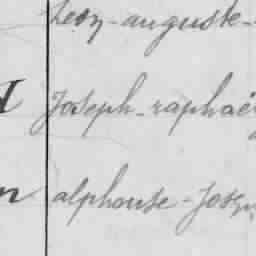 Léon-auguste-
Joseph-raphaë
alphonse-Josep